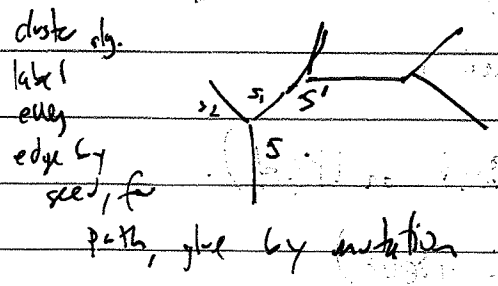 cluster alg.
label
every
edge by
seed, for
path, glue by mutation
s₂
s₁
S'
S